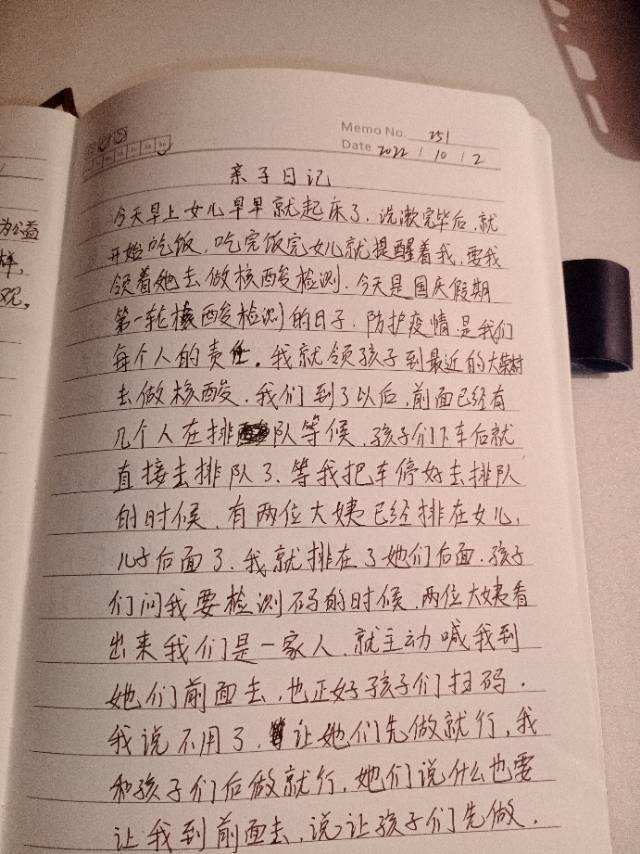 为公益
样,
观,
Memo No. 251
Date 2022 / 10 / 2
亲子日记
今天早上女儿早早就起床了,洗漱完毕后,就
开始吃饭,吃完饭完女儿就提醒着我,要我
领着她去做核酸检测.今天是国庆假期
第一轮核酸检测的日子.防护疫情是我们
每个人的责任.我就领孩子到最近的大柴村
去做核酸.我们到了以后,前面已经有
几个人在排队等候,孩子们下车后就
直接去排队了.等我把车停好去排队
的时候,有两位大姨已经排在女儿,
儿子后面了.我就排在了她们后面.孩子
们问我要检测码的时候,两位大姨看
出来我们是一家人.就主动喊我到
她们前面去,也正好孩子们扫码.
我说不用了,让她们先做就行,我
和孩子们后做就行,她们说什么也要
让我到前面去,说让孩子们先做.